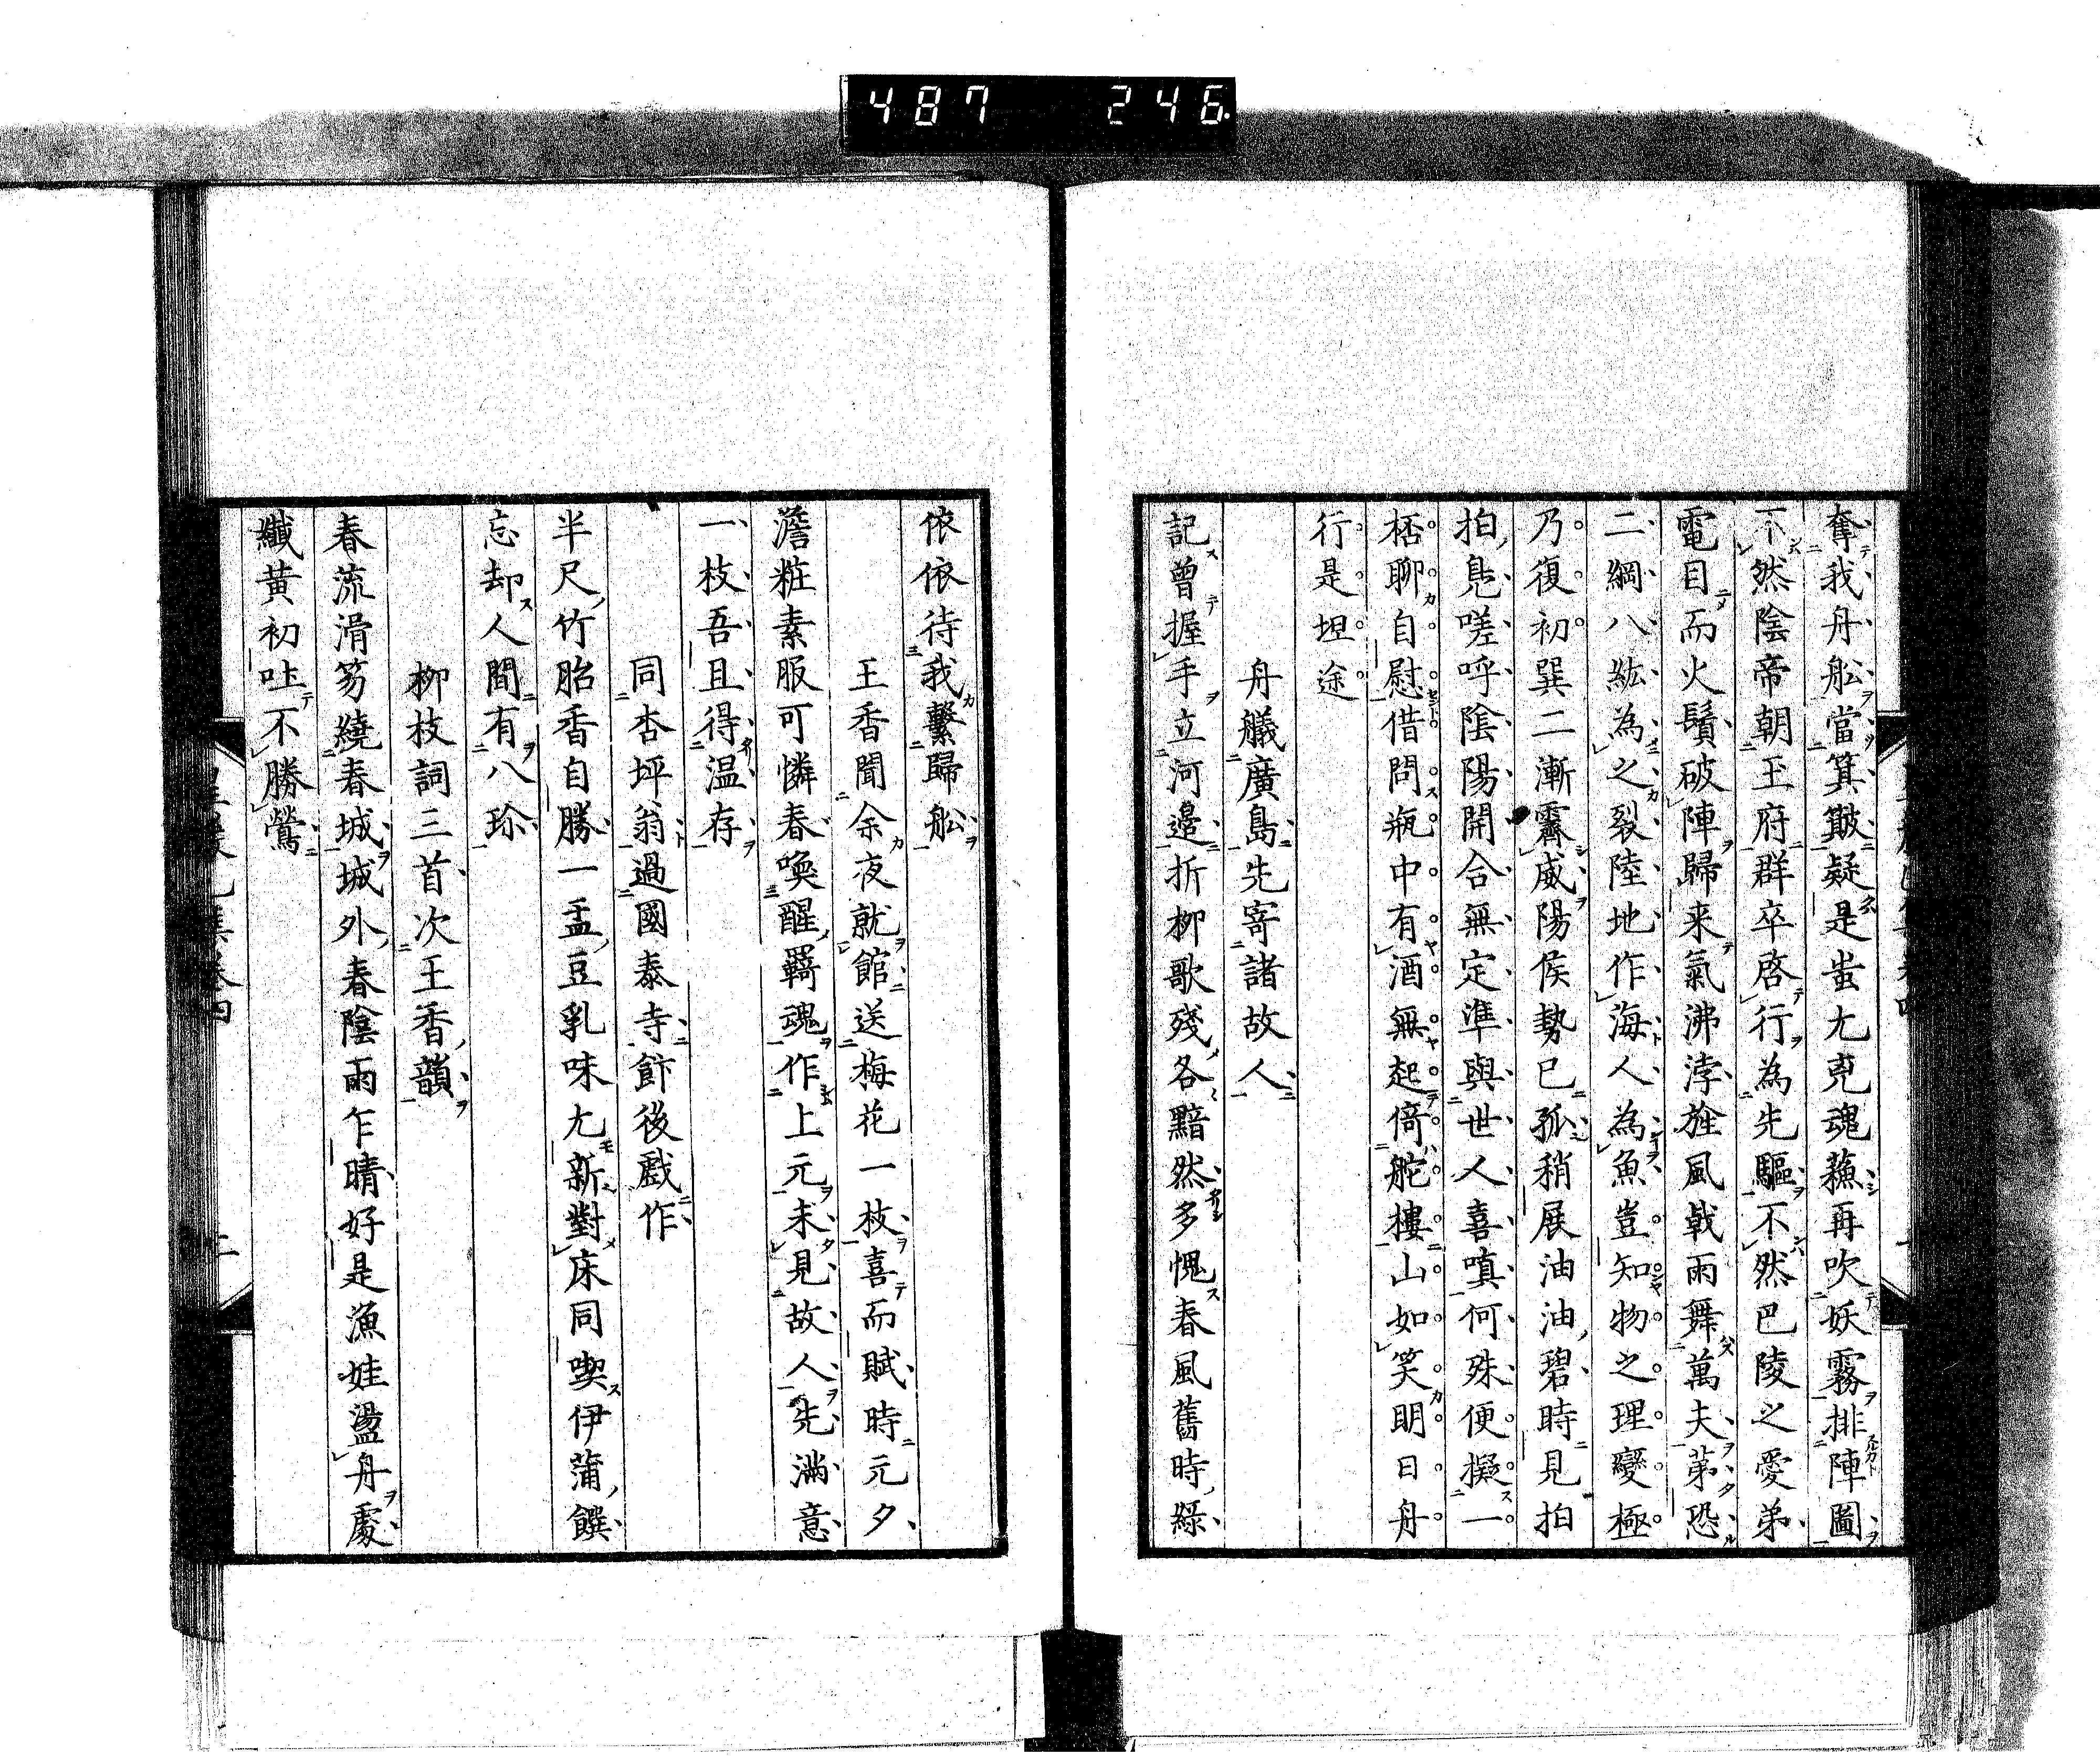 487 246
奪我舟舩當箕簸疑是蚩尤兇魂蘓再吹妖霧排陣圖
不然陰帝朝王府群卒啓行為先驅不然巴陵之愛弟
電目而火鬚破陣歸来氣沸浡旌風戟雨舞萬夫苐恐
二綱八紘為之裂陸地作海人為魚豈知物之理變極
乃復初巽二漸霽威陽侯勢已孤稍展油油碧時見拍
拍鳬嗟呼陰陽開合無定準與世人喜嗔何殊便擬一
桮聊自慰借問瓶中有酒無起倚舵樓山如笑明日舟
行是坦途
舟艤廣島先寄諸故人
記曾握手立河邉折柳歌殘各黯然多愧春風舊時緑
依依待我繫歸舩
王香聞余夜就館送梅花一枝喜而賦時元夕
澹粧素服可憐春喚醒羇魂作上元未見故人先滿意
一枝吾且得温存
同杏坪翁過國泰寺飰後戲作
半尺竹胎香自勝一盂豆乳味尤新對床同喫伊蒲饌
忘却人間有八珍
柳枝詞三首次王香韻
春流滑笏繞春城城外春陰雨乍晴好是漁娃盪舟處
纎黄初吐不勝鶯